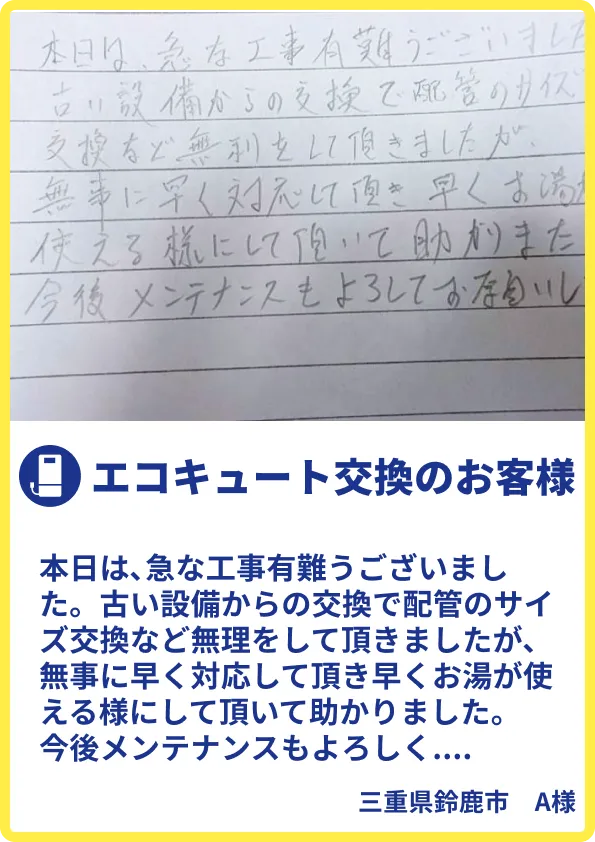 本日は、急な工事有難うございました
古い設備からの交換で配管のサイズ
交換など無利をして頂きましたが、
無事に早く対応して頂き早くお湯が
使える様にして頂いて助かりました
今後メンテナンスもよろしてお願いし
エコキュート交換のお客様
本日は、急な工事有難うございまし
た。古い設備からの交換で配管のサイ
ズ交換など無理をして頂きましたが、
無事に早く対応して頂き早くお湯が使
える様にして頂いて助かりました。
今後メンテナンスもよろしく....
三重県鈴鹿市 A様